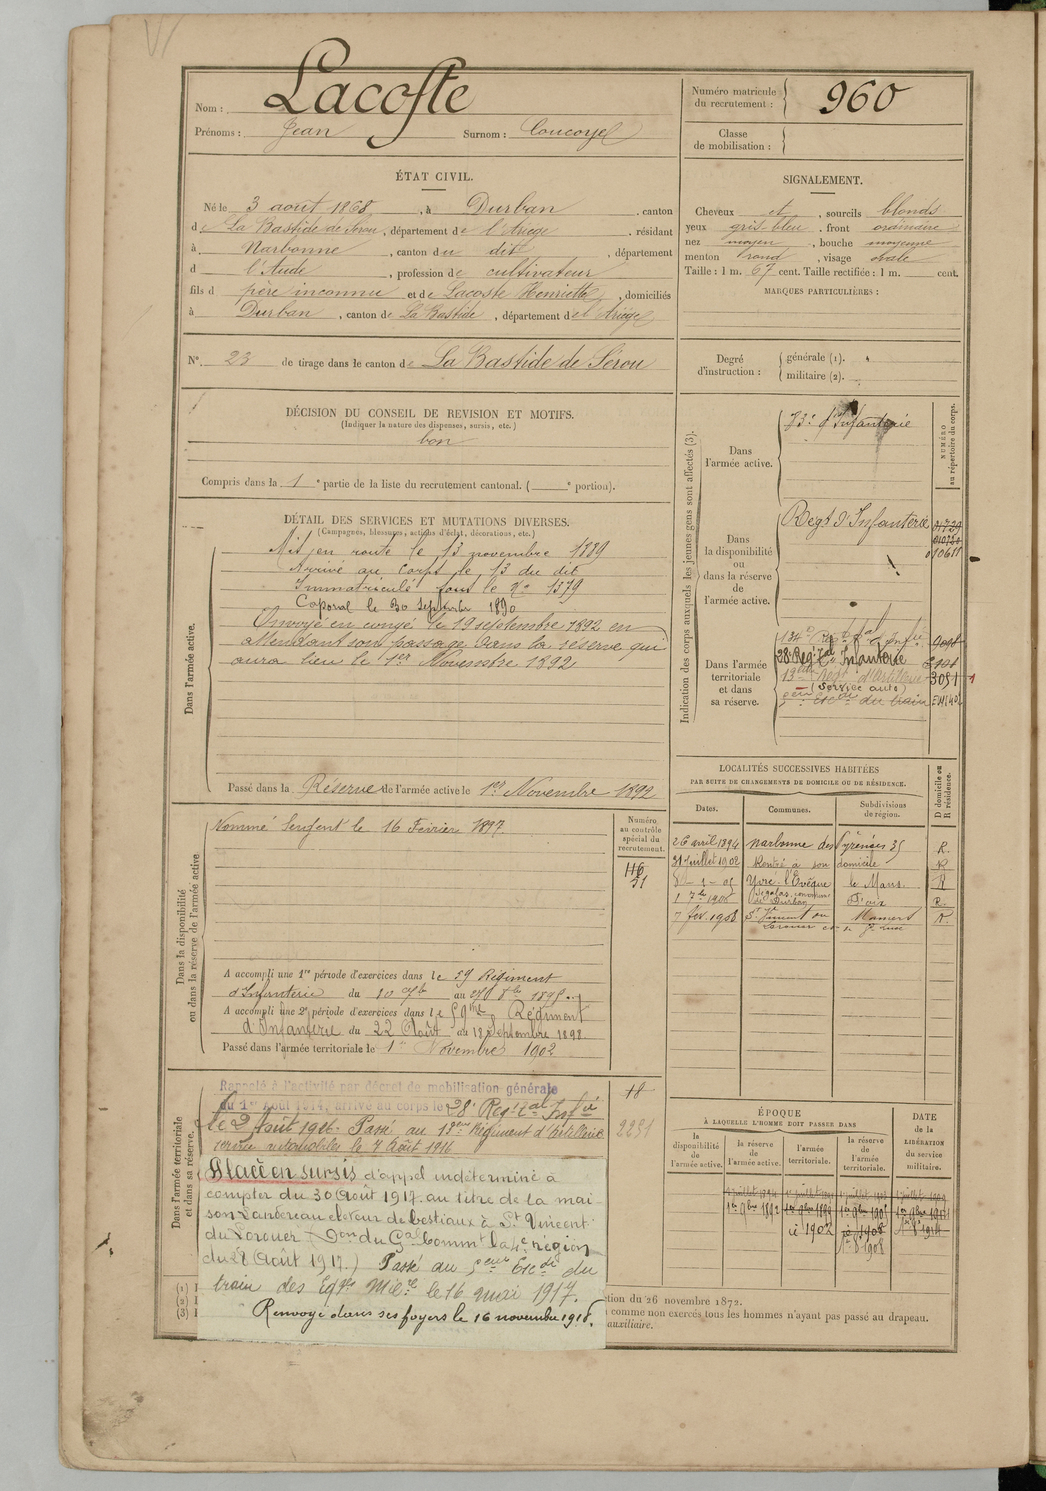 Nom : Lacoste
Prénoms : Jean Surnom :
Numéro matricule du recrutement : 960
Classe de mobilisation :
ÉTAT CIVIL.
Né le 3 août 1868, à Durban, canton
de La Bastide de Sérou, département de l'Ariège, résidant
à Narbonne, canton du dit, département
d l'Aude, profession de cultivateur
fils d père inconnu et de Lacoste Henriette, domiciliés
à Durban, canton de La Bastide, département de l'Ariège
N° 23 de tirage dans le canton de La Bastide de Sérou
SIGNALEMENT.
Cheveux et, sourcils blonds
yeux gris-bleu, front ordinaire
nez moyen, bouche moyenne
menton rond, visage ovale
Taille : 1 m. 67 cent. Taille rectifiée : 1 m. cent.
MARQUES PARTICULIÈRES :
Degré d'instruction : générale (1).
militaire (2).
DÉCISION DU CONSEIL DE REVISION ET MOTIFS.
(Indiquer la nature des dispenses, sursis, etc.)
bon
Compris dans la 1e partie de la liste du recrutement cantonal. ( e portion).
DÉTAIL DES SERVICES ET MUTATIONS DIVERSES.
(Campagnes, blessures, actions d'éclat, décorations, etc.)
Dans l'armée active.
Mis en route le 13 novembre 1889
Arrivé au Corps le 13 du dit
Immatriculé sous le No 1379
Caporal le 30 septembre 1890
Envoyé en congé le 19 septembre 1892 en
attendant son passage dans la réserve qui
aura lieu le 1er Novembre 1892
Passé dans la Réserve de l'armée active le 1er Novembre 1892
Dans la disponibilité ou dans la réserve de l'armée active
Nommé Sergent le 16 Février 1897
Numéro au contrôle spécial du recrutement.
116
31
A accompli une 1re période d'exercices dans le 59 Régiment
d'Infanterie du 10 au 1895
A accompli une 2e période d'exercices dans le 59me Régiment
d'Infanterie du 22 Août au 18 Septembre 1898
Passé dans l'armée territoriale le 1er Novembre 1902
Dans l'armée territoriale et dans sa réserve.
Rappelé à l'activité par décret de mobilisation générale
du 1er Août 1914, arrivé au corps le 28e Regt tal Infie
le 2 Août 1914. Passé au 13eme Régiment d'Artillerie
service automobiles le 7 Août 1916
18
2231
Placé en sursis d'appel indéterminé à
compter du 30 Août 1917 au titre de la mai
son Landereau éleveur de bestiaux à St Vincent
du Lorouer (Don du Gal Commt la 4e région
du 28 Août 1917.) Passé au 5eme Escon du
train des Eqges Milres le 16 mai 1917.
Renvoyé dans ses foyers le 16 novembre 1918.
Indication des corps auxquels les jeunes gens sont affectés (3).
NUMÉRO au répertoire du corps.
Dans l'armée active.
73e d'Infanterie
Dans la disponibilité ou dans la réserve de l'armée active.
Regt d'Infanterie
010611
Dans l'armée territoriale et dans sa réserve.
134e Regt tal d'Infie
28e Reg. tal Infanterie
13eme Regt d'Artillerie 3051
(Service auto)
5eme Escon du train
LOCALITÉS SUCCESSIVES HABITÉES
PAR SUITE DE CHANGEMENTS DE DOMICILE OU DE RÉSIDENCE.
Dates. Communes. Subdivisions de région. D domicile ou R résidence.
26 avril 1894 Narbonne des Pyrénées 35 R.
31 Juillet 1902 Rentré à son domicile R
Yvré-l'Evêque le Mans. R
de Durban Foix R.
7 fév. 1908 St Vincent du Mamers R.
ÉPOQUE
À LAQUELLE L'HOMME DOIT PASSER DANS
la disponibilité de l'armée active. la réserve de l'armée active. l'armée territoriale. la réserve de l'armée territoriale.
DATE de la LIBÉRATION du service militaire.
1er 9bre 1892
1902
1908
(1)
(2)
(3)
tion du 26 novembre 1872.
comme non exercés tous les hommes n'ayant pas passé au drapeau.
auxiliaire.